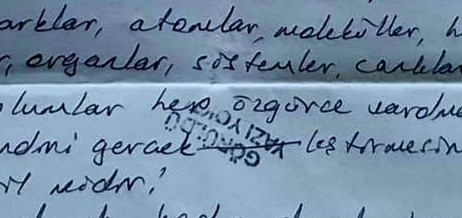 arklar, atomlar, moleküller, h
r, organlar, sistemler, canlılar
lumlar hep özgürce vardı
ndini gerçek leştirmesin
il midir!
GÖRÜLDÜ